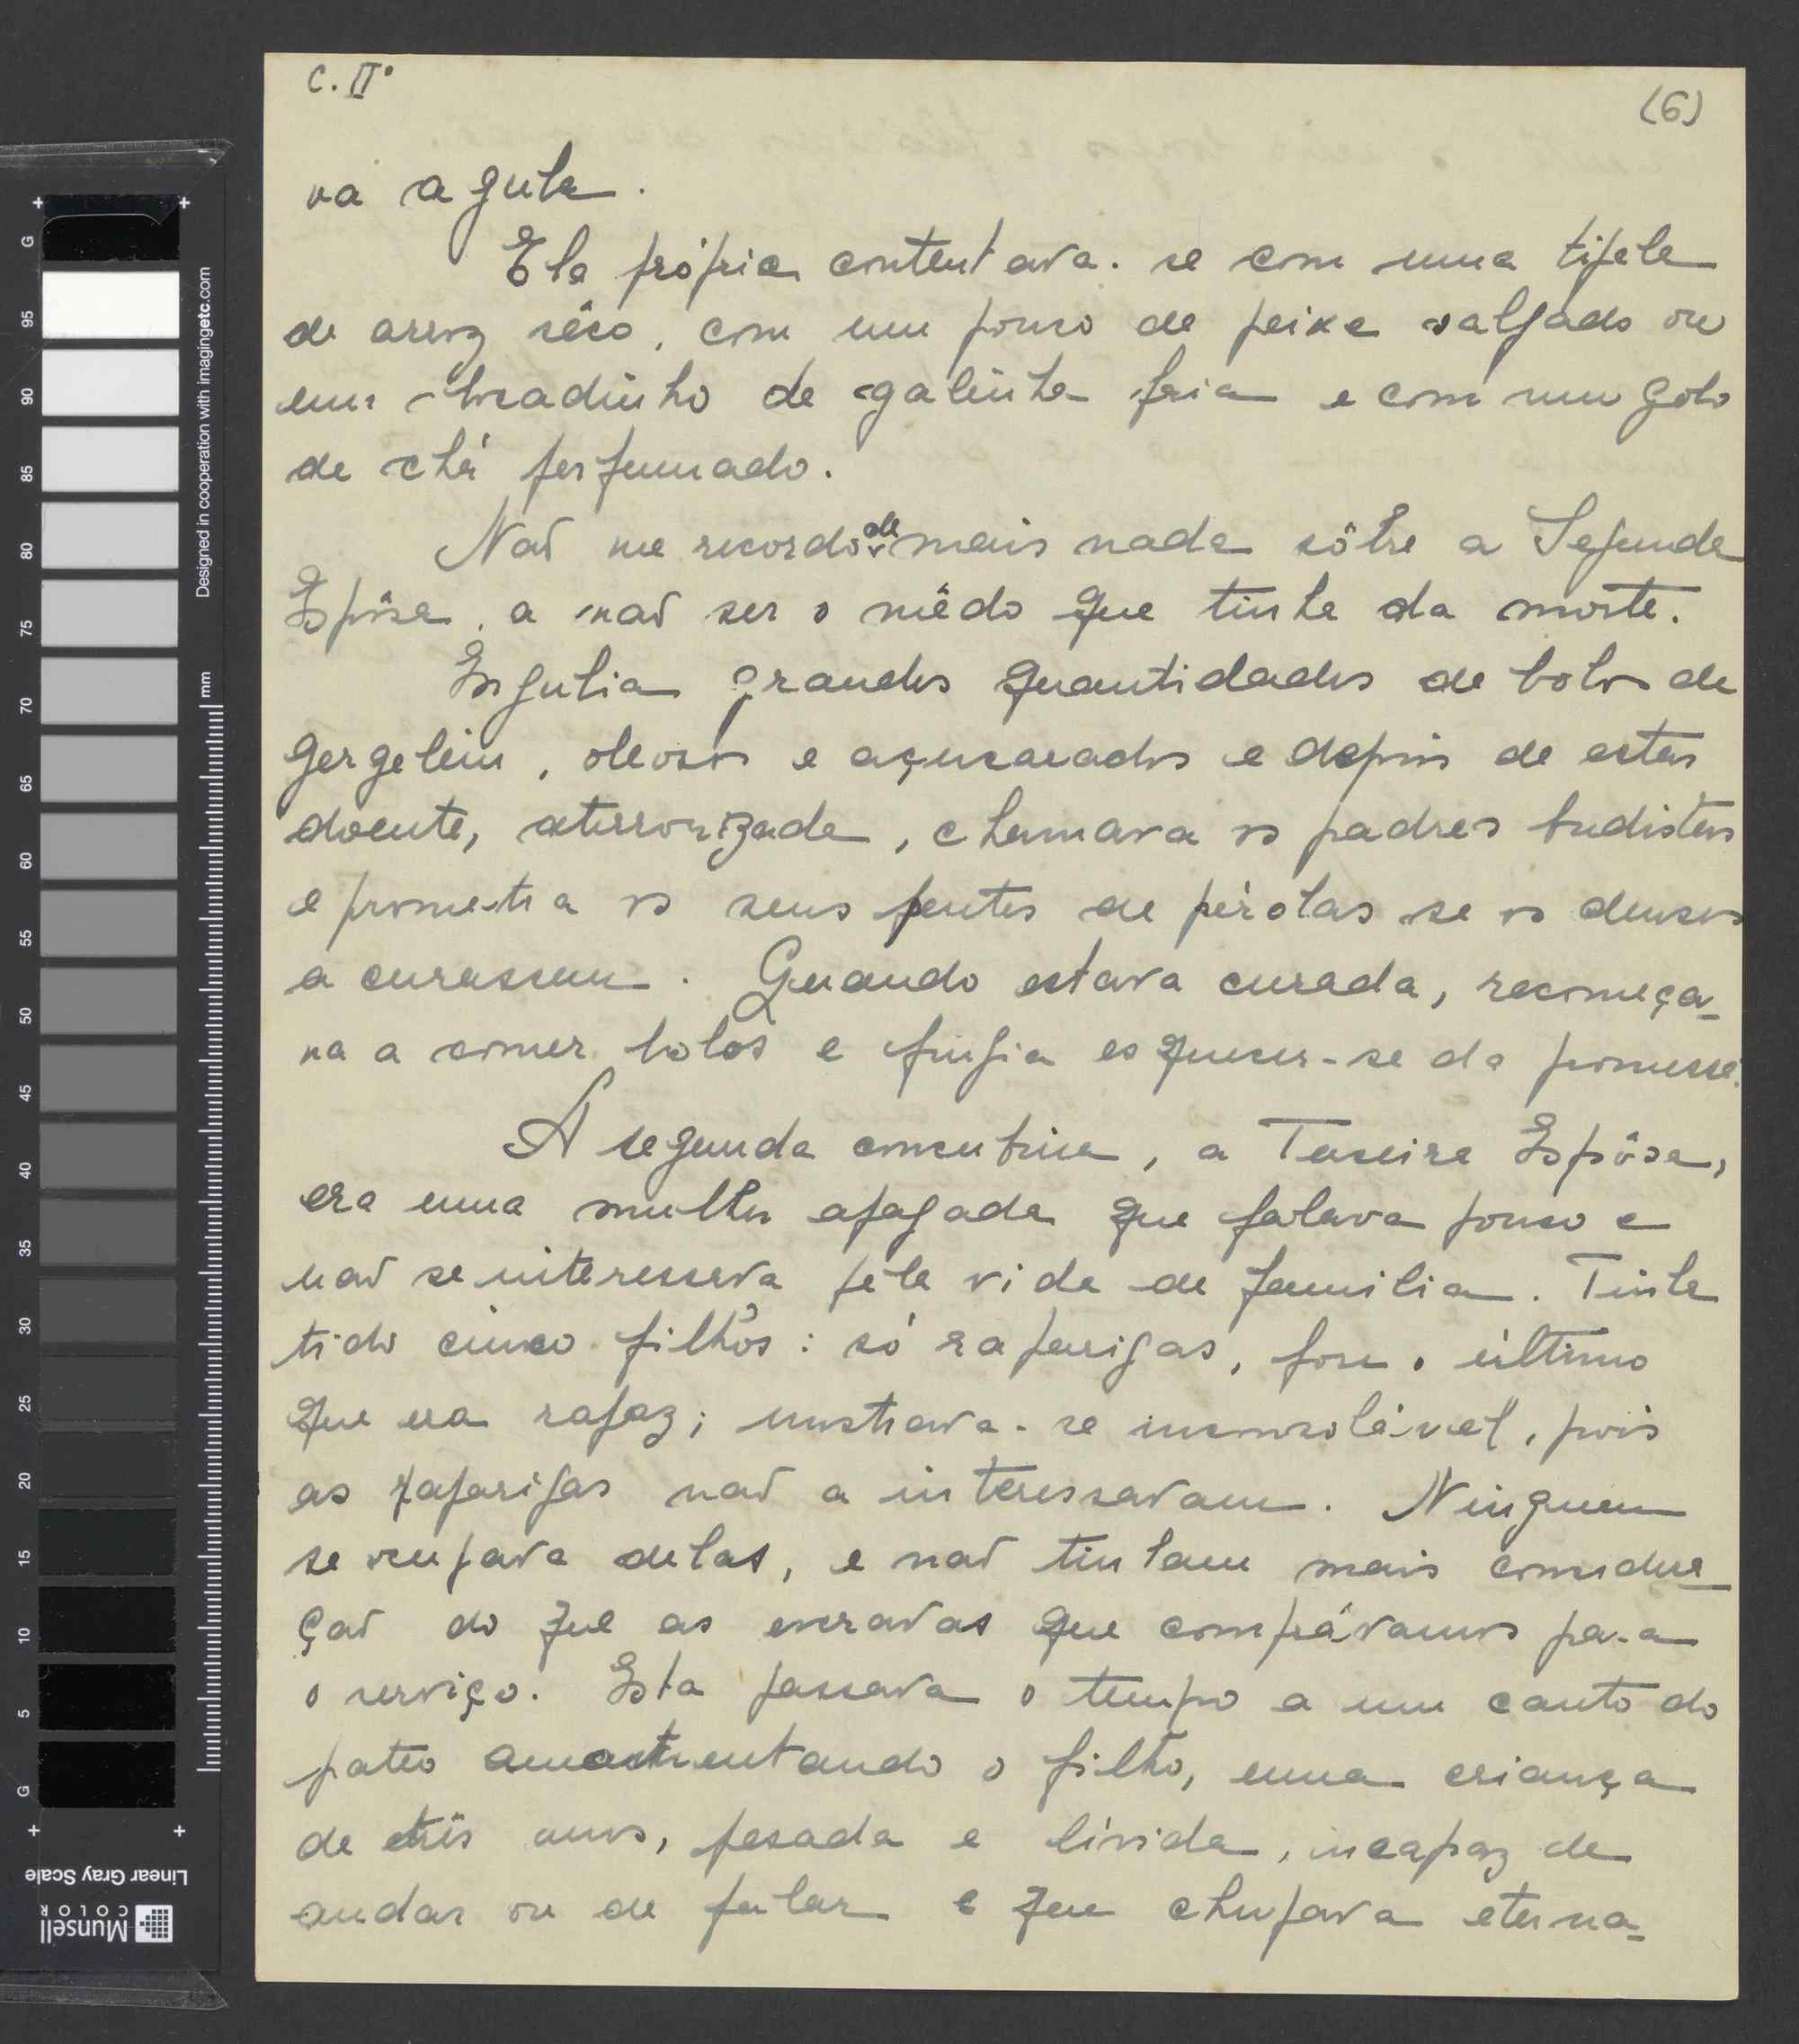 C. IIº
(6)
va a gula.
Ela própria contentava-se com uma tijela
de arroz sêco, com um pouco de peixe salgado ou
um bocadinho de galinha fria e com um golo
de chá perfumado.
Não me recordo de mais nada sôbre a Segunda
Espôsa, a não ser o mêdo que tinha da morte.
Engulia grandes quantidades de bolos de
gergelim, oleosos e açucarados e depois de estar
doente, aterrorizada, chamava os padres budistas
e prometia os seus pentes de pérolas se os deuses
a curassem. Quando estava curada, recomeça-
va a comer bolos e fingia esquecer-se da promessa.
A segunda concubina, a Terceira Espôsa,
era uma mulher apagada que falava pouco e
não se interessava pela vida de familia. Tinha
tido cinco filhos: só raparigas, fora o último
que era rapaz; mostrava-se inconsolável, pois
as raparigas não a interessavam. Ninguem
se ocupava delas, e não tinham mais considera-
ção do que as escravas que comprávamos para
o serviço. Esta passava o tempo a um canto do
pateo amamentando o filho, uma criança
de três anos, pesada e lívida, incapaz de
andar ou de falar e que chupava eterna-
Designed in cooperation with imagingetc.com
mm
G 95 90 85 80 75 70 65 60 55 50 45 40 35 30 25 20 15 10 5 G
Linear Gray Scale
Munsell
COLOR